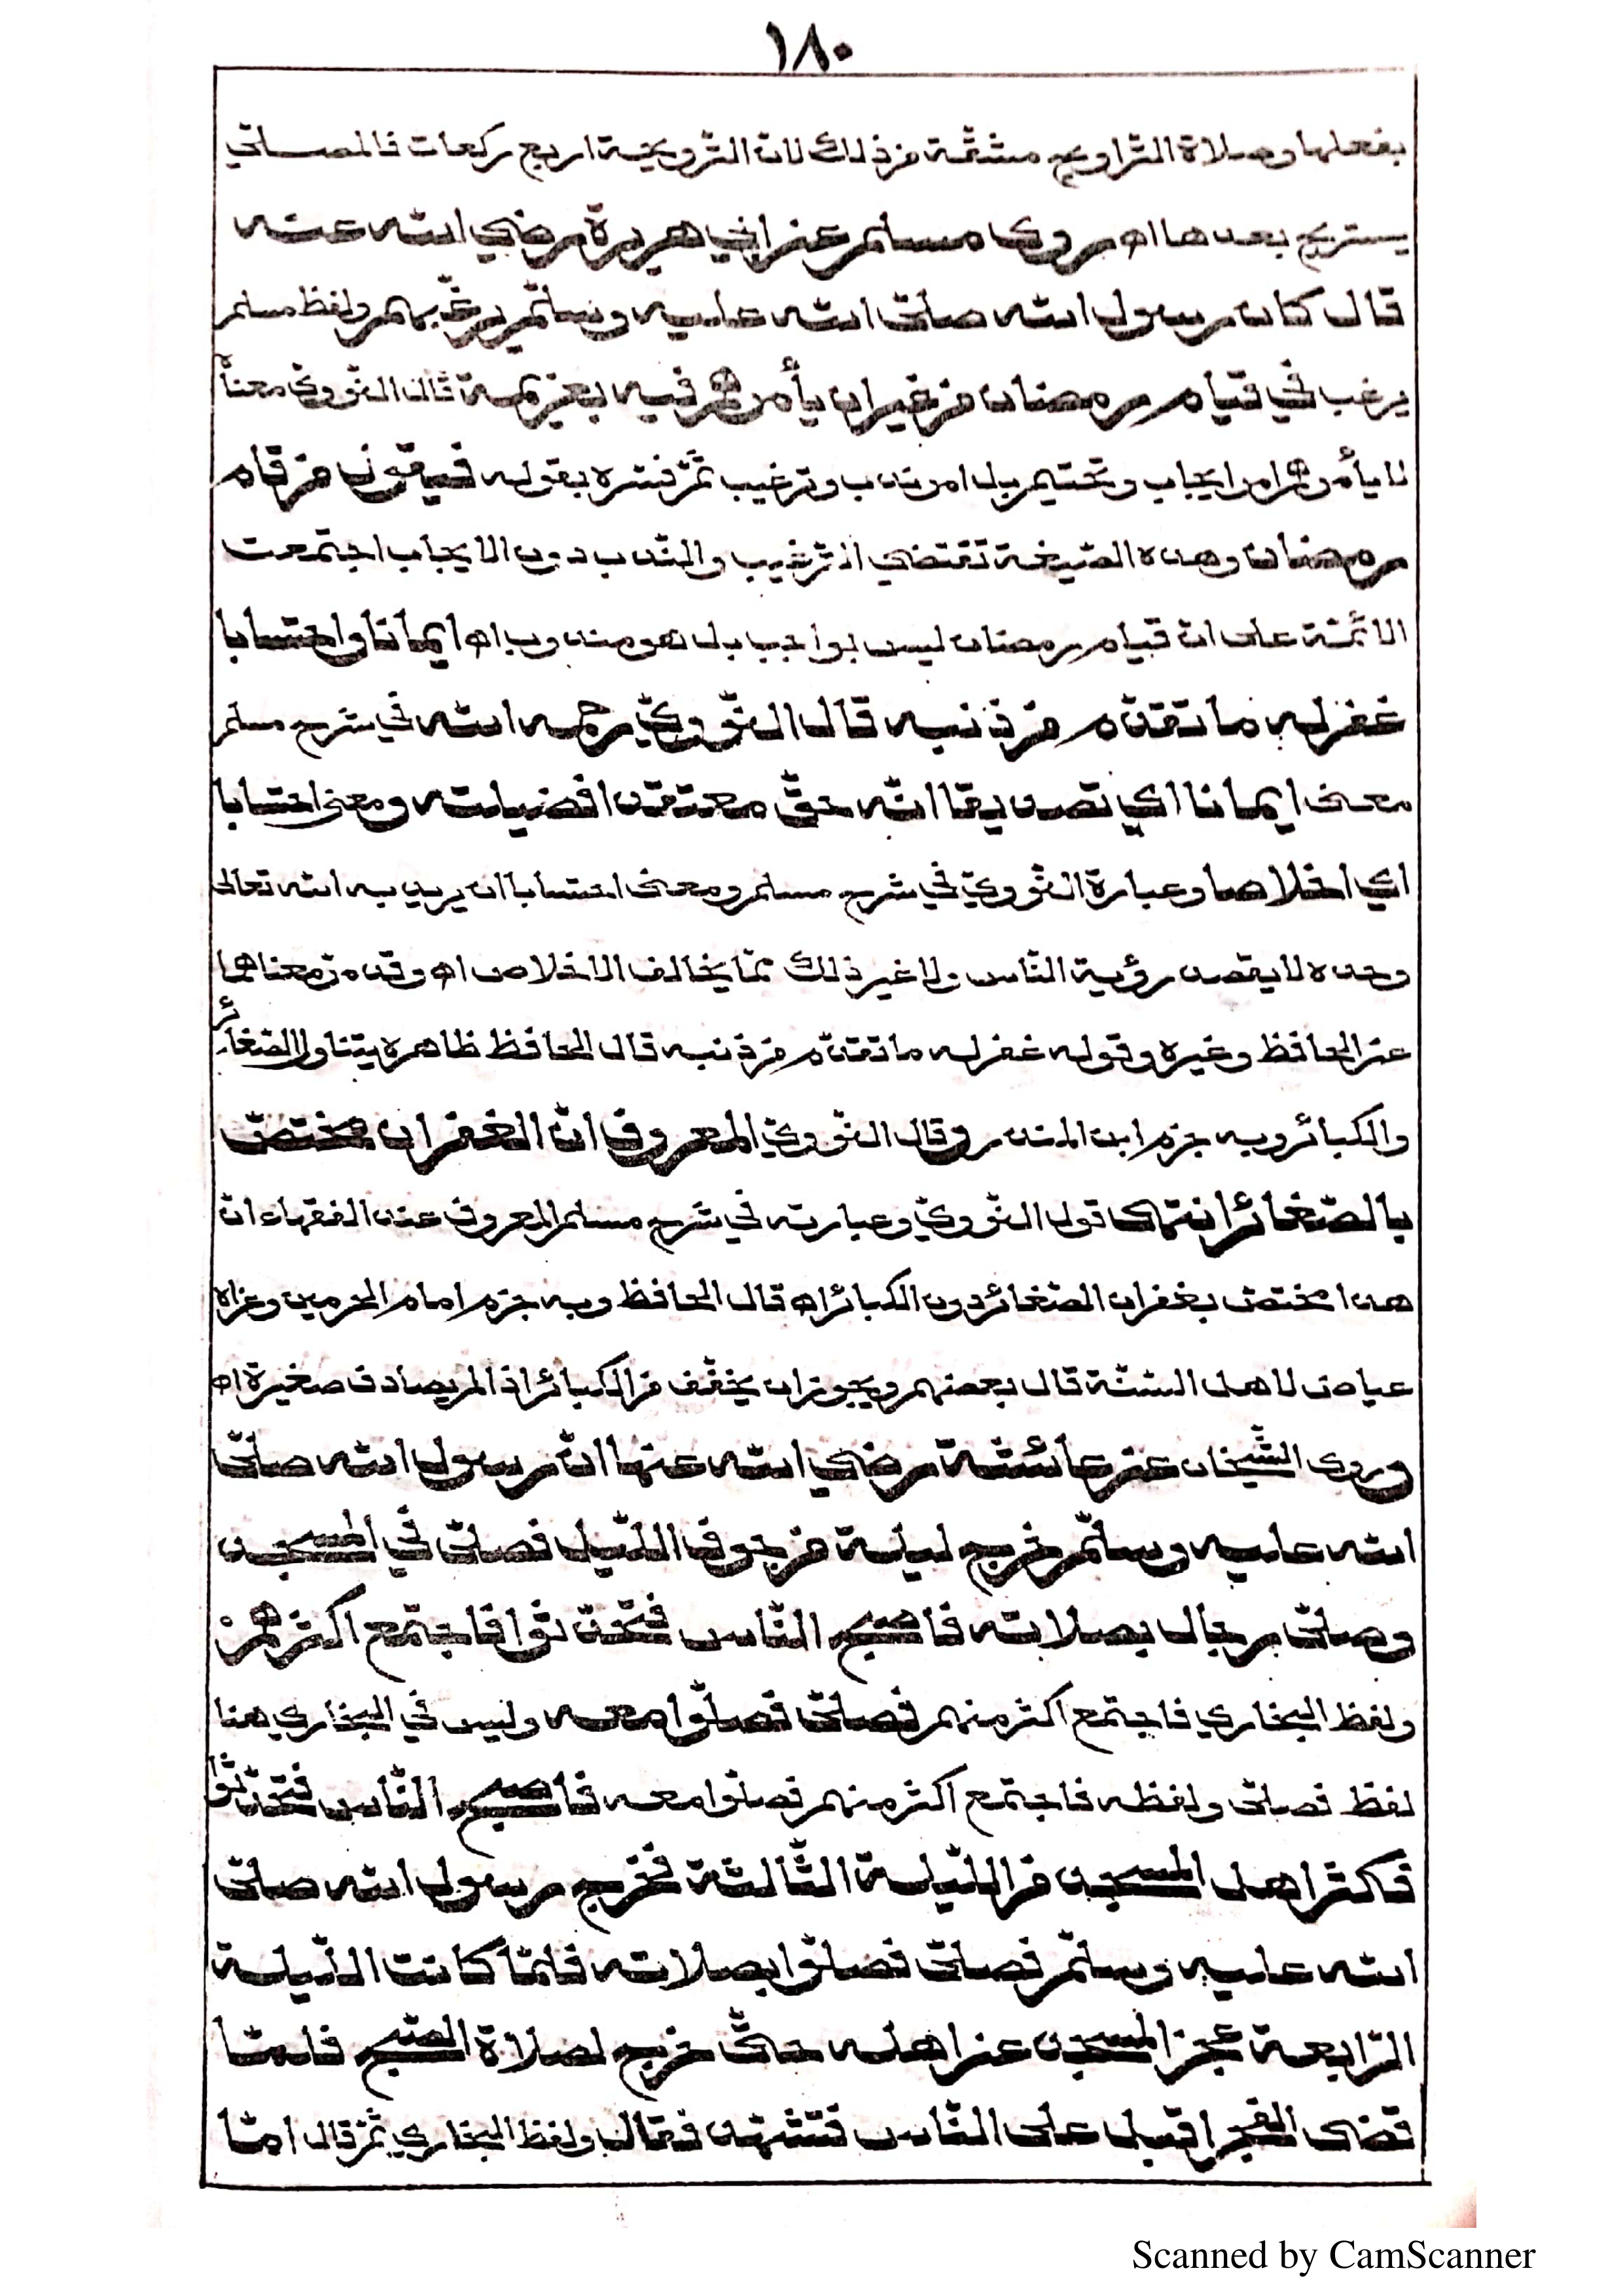 ١٨٠
بفعلها وصلاة التّراويح مشتقّة من ذلك لانّ التّرويحة اربع ركعات فالمصلّي
يستريح بعدها اه روى مسلم عن ابي هريرة رضي الله عنه
قال كان رسول الله صلّى الله عليه وسلّم يرغّبهم ولفظ مسلم
يرغب في قيام رمضان من غير ان يأمرهم فيه بعزيمة قال النّووي معناه
لا يأمرهم امر ايجاب وتحتيم بل امر ندب وترغيب ثمّ فسّره بقوله فيقول من قام
رمضان وهذه الصّيغة تقتضي التّرغيب والنّدب دون الايجاب اجتمعت
الائمّة على ان قيام رمضان ليس بواجب بل هو مندوب اه ايمانا واحتسابا
غفر له ما تقدّم من ذنبه قال النّوويّ رحمه الله في شرح مسلم
معنى ايمانا اي تصديقا انّه حقّ معتقدا فضيلته ومعنى احتسابا
اي اخلاصا وعبارة النّوويّ في شرح مسلم ومعنى احتسابا ان يريد به الله تعالى
وحده لا يقصد رؤية النّاس ولا غير ذلك ممّا يخالف الاخلاص اه وقد مرّ معناهما
عن الحافظ وغيره وقوله غفر له ما تقدّم من ذنبه قال الحافظ ظاهره يتناول الصّغائر
والكبائر وبه جزم ابن المنذر وقال النّوويّ المعروف انّ الغفران مختصّ
بالصّغائر انتهى قول النّوويّ وعبارته في شرح مسلم المعروف عند الفقهاء انّ
هذا مختصّ بغفران الصّغائر دون الكبائر اه قال الحافظ وبه جزم امام الحرمين وعزاه
عياض لاهل السّنّة قال بعضهم ويجوز ان يخفّف من الكبائر اذا لم يصادف صغيرة اه
وروى الشّيخان عن عائشة رضي الله عنها انّ رسول الله صلّى
الله عليه وسلّم خرج ليلة من جوف اللّيل فصلّى في المسجد
وصلّى رجال بصلاته فاصبح النّاس فتحدّثوا فاجتمع اكثر منهم
ولفظ البخاري فاجتمع اكثر منهم فصلّى فصلّوا معه وليس في البخاري هنا
لفظ فصلّى ولفظه فاجتمع اكثر منهم فصلّوا معه فاصبح النّاس فتحدّثوا
فكثر اهل المسجد من اللّيلة الثّالثة فخرج رسول الله صلّى
الله عليه وسلّم فصلّى فصلّوا بصلاته فلمّا كانت اللّيلة
الرّابعة عجز المسجد عن اهله حتّى خرج لصلاة الصّبح فلمّا
قضى الفجر اقبل على النّاس فتشهّد فقال ولفظ البخاري ثمّ قال امّا
Scanned by CamScanner